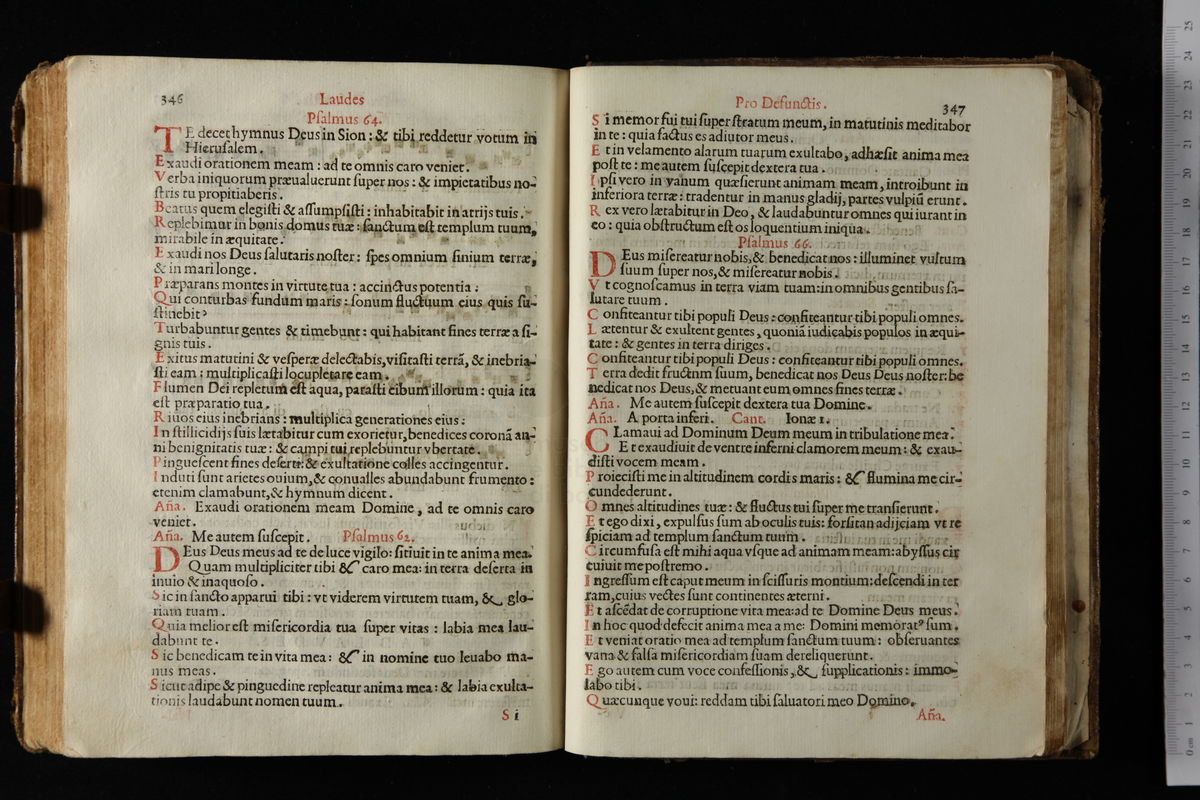 346
Laudes
Psalmus 64.
TE decet hymnus Deus in Sion : & tibi reddetur votum in
Hierusalem.
Exaudi orationem meam : ad te omnis caro veniet.
Verba iniquorum præualuerunt super nos : & impietatibus no-
stris tu propitiaberis.
Beatus quem elegisti & assumpsisti : inhabitabit in atrijs tuis.
Replebimur in bonis domus tuæ : sanctum est templum tuum,
mirabile in æquitate.
Exaudi nos Deus salutaris noster : spes omnium finium terræ,
& in mari longe.
Præparans montes in virtute tua : accinctus potentia :
Qui conturbas fundum maris : sonum fluctuum eius quis su-
stinebit?
Turbabuntur gentes & timebunt : qui habitant fines terræ a si-
gnis tuis.
Exitus matutini & vesperæ delectabis, visitasti terrã, & inebria-
sti eam : multiplicasti locupletare eam.
Flumen Dei repletum est aqua, parasti cibum illorum : quia ita
est præparatio tua.
Riuos eius inebrians : multiplica generationes eius :
In stillicidijs suis lætabitur cum exorietur, benedices coronã an-
ni benignitatis tuæ : & campi tui replebuntur vbertate.
Pinguescent fines deserti: & exultatione colles accingentur.
Induti sunt arietes ouium, & conualles abundabunt frumento :
etenim clamabunt, & hymnum dicent.
Aña. Exaudi orationem meam Domine, ad te omnis caro
veniet.
Aña. Me autem suscepit. Psalmus 62.
DEus Deus meus ad te de luce vigilo: sitiuit in te anima mea.
Quam multipliciter tibi & caro mea: in terra deserta in
inuio & inaquoso.
Sic in sancto apparui tibi : vt viderem virtutem tuam, & glo-
riam tuam.
Quia melior est misericordia tua super vitas : labia mea lau-
dabunt te.
Sic benedicam te in vita mea : & in nomine tuo leuabo ma-
nus meas.
Sicut adipe & pinguedine repleatur anima mea : & labia exulta-
tionis laudabunt nomen tuum.
Si
Pro Defunctis.
347
Si memor fui tui super stratum meum, in matutinis meditabor
in te : quia factus es adiutor meus.
Et in velamento alarum tuarum exultabo, adhæsit anima mea
post te : me autem suscepit dextera tua.
Ipsi vero in vanum quæsierunt animam meam, introibunt in
inferiora terræ : tradentur in manus gladij, partes vulpiũ erunt.
Rex vero lætabitur in Deo, & laudabuntur omnes qui iurant in
eo : quia obstructum est os loquentium iniqua.
Psalmus 66.
DEus misereatur nobis, & benedicat nos : illuminet vultum
suum super nos, & misereatur nobis.
Vt cognoscamus in terra viam tuam: in omnibus gentibus sa-
lutare tuum.
Confiteantur tibi populi Deus : confiteantur tibi populi omnes.
Lætentur & exultent gentes, quoniã iudicabis populos in æqui-
tate : & gentes in terra diriges.
Confiteantur tibi populi Deus : confiteantur tibi populi omnes.
Terra dedit fructnm suum, benedicat nos Deus Deus noster: be
nedicat nos Deus, & metuant eum omnes fines terræ.
Aña. Me autem suscepit dextera tua Domine.
Aña. A porta inferi. Cant. Ionæ 1.
CLamaui ad Dominum Deum meum in tribulatione mea.
Et exaudiuit de ventre inferni clamorem meum : & exau-
disti vocem meam.
Proiecisti me in altitudinem cordis maris : & flumina me cir-
cundederunt.
Omnes altitudines tuæ : & fluctus tui super me transierunt.
Et ego dixi, expulsus sum ab oculis tuis: forsitan adijciam vt re
spiciam ad templum sanctum tuum.
Circumfusa est mihi aqua vsque ad animam meam: abyssus cir
cuiuit me postremo.
Ingressum est caput meum in scissuris montium: descendi in ter
ram, cuius vectes sunt continentes æterni.
Et ascẽdat de corruptione vita mea: ad te Domine Deus meus.
In hoc quod defecit anima mea a me: Domini memorat⁹ sum.
Et veniat oratio mea ad templum sanctum tuum : obseruantes
vana & falsa misericordiam suam dereliquerunt.
Ego autem cum voce confessionis, & supplicationis : immo-
labo tibi.
Quæcunque voui: reddam tibi saluatori meo Domino.
Aña.